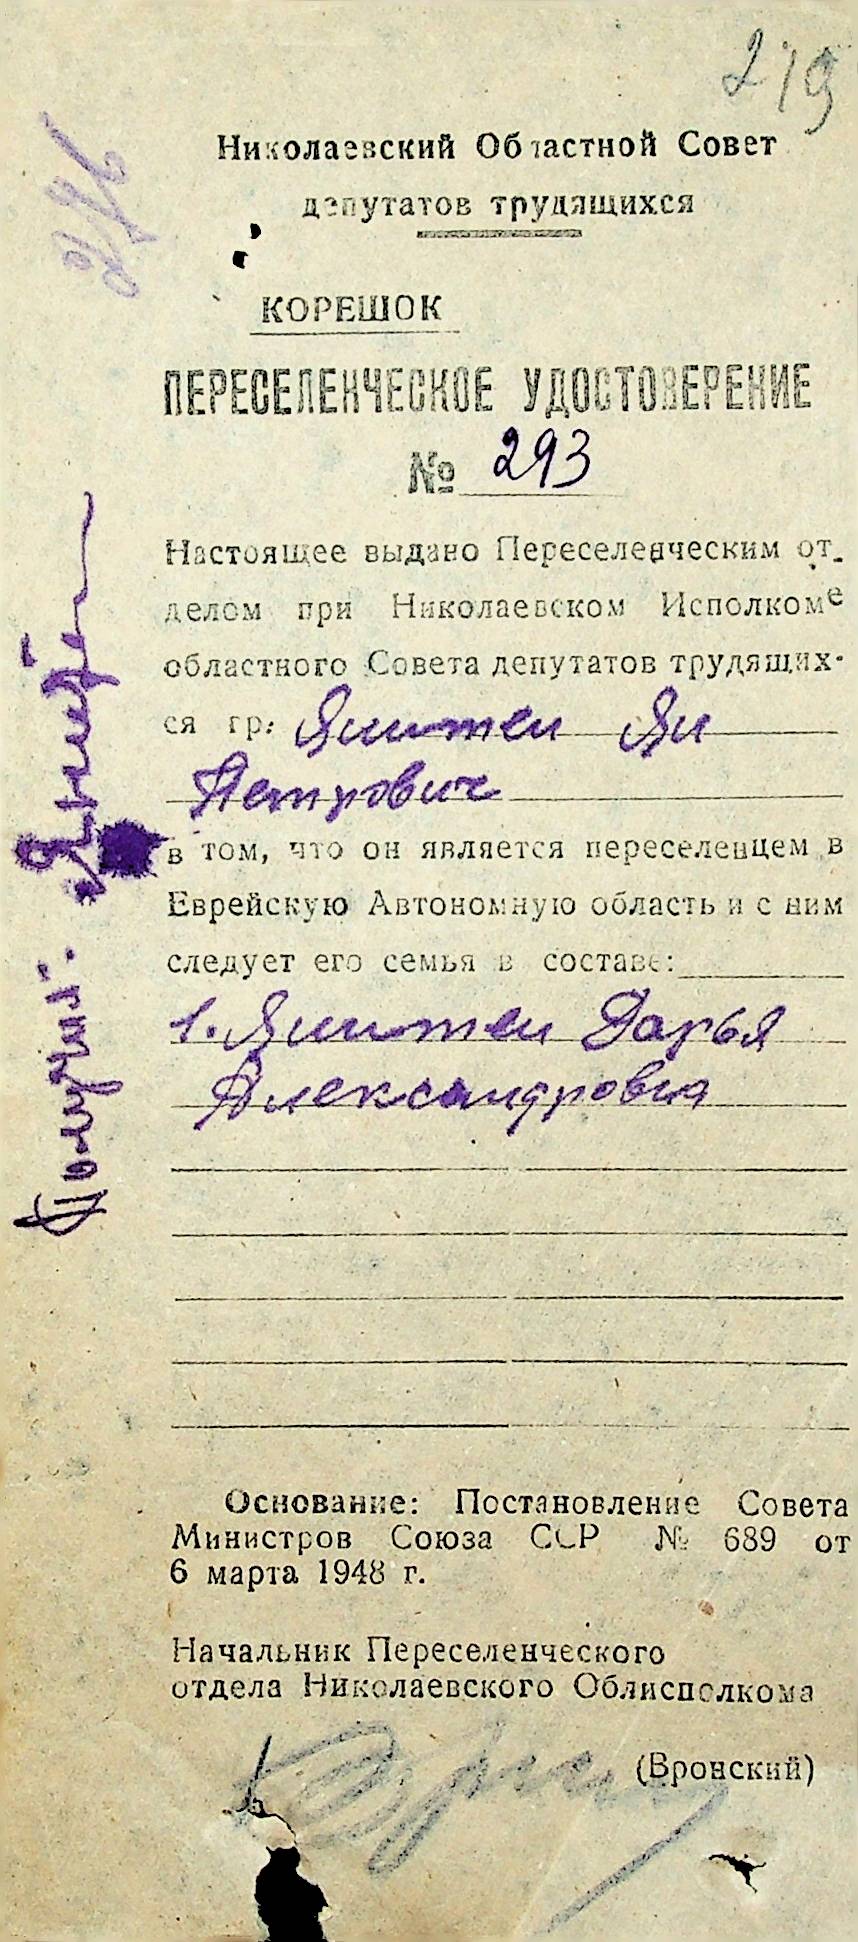 219
Николаевский Областной Совет
депутатов трудящихся
КОРЕШОК
ПЕРЕСЕЛЕНЧЕСКОЕ УДОСТОВЕРЕНИЕ
№ 293
Настоящее выдано Переселенческим от-
делом при Николаевском Исполкоме
областного Совета депутатов трудящих-
ся гр. Ян
Петрович
в том, что он является переселенцем в
Еврейскую Автономную область и с ним
следует его семья в составе:
1. Дарья
Александровна
Основание: Постановление Совета
Министров Союза ССР № 689 от
6 марта 1948 г.
Начальник Переселенческого
отдела Николаевского Облисполкома
(Вронский)
Получил.